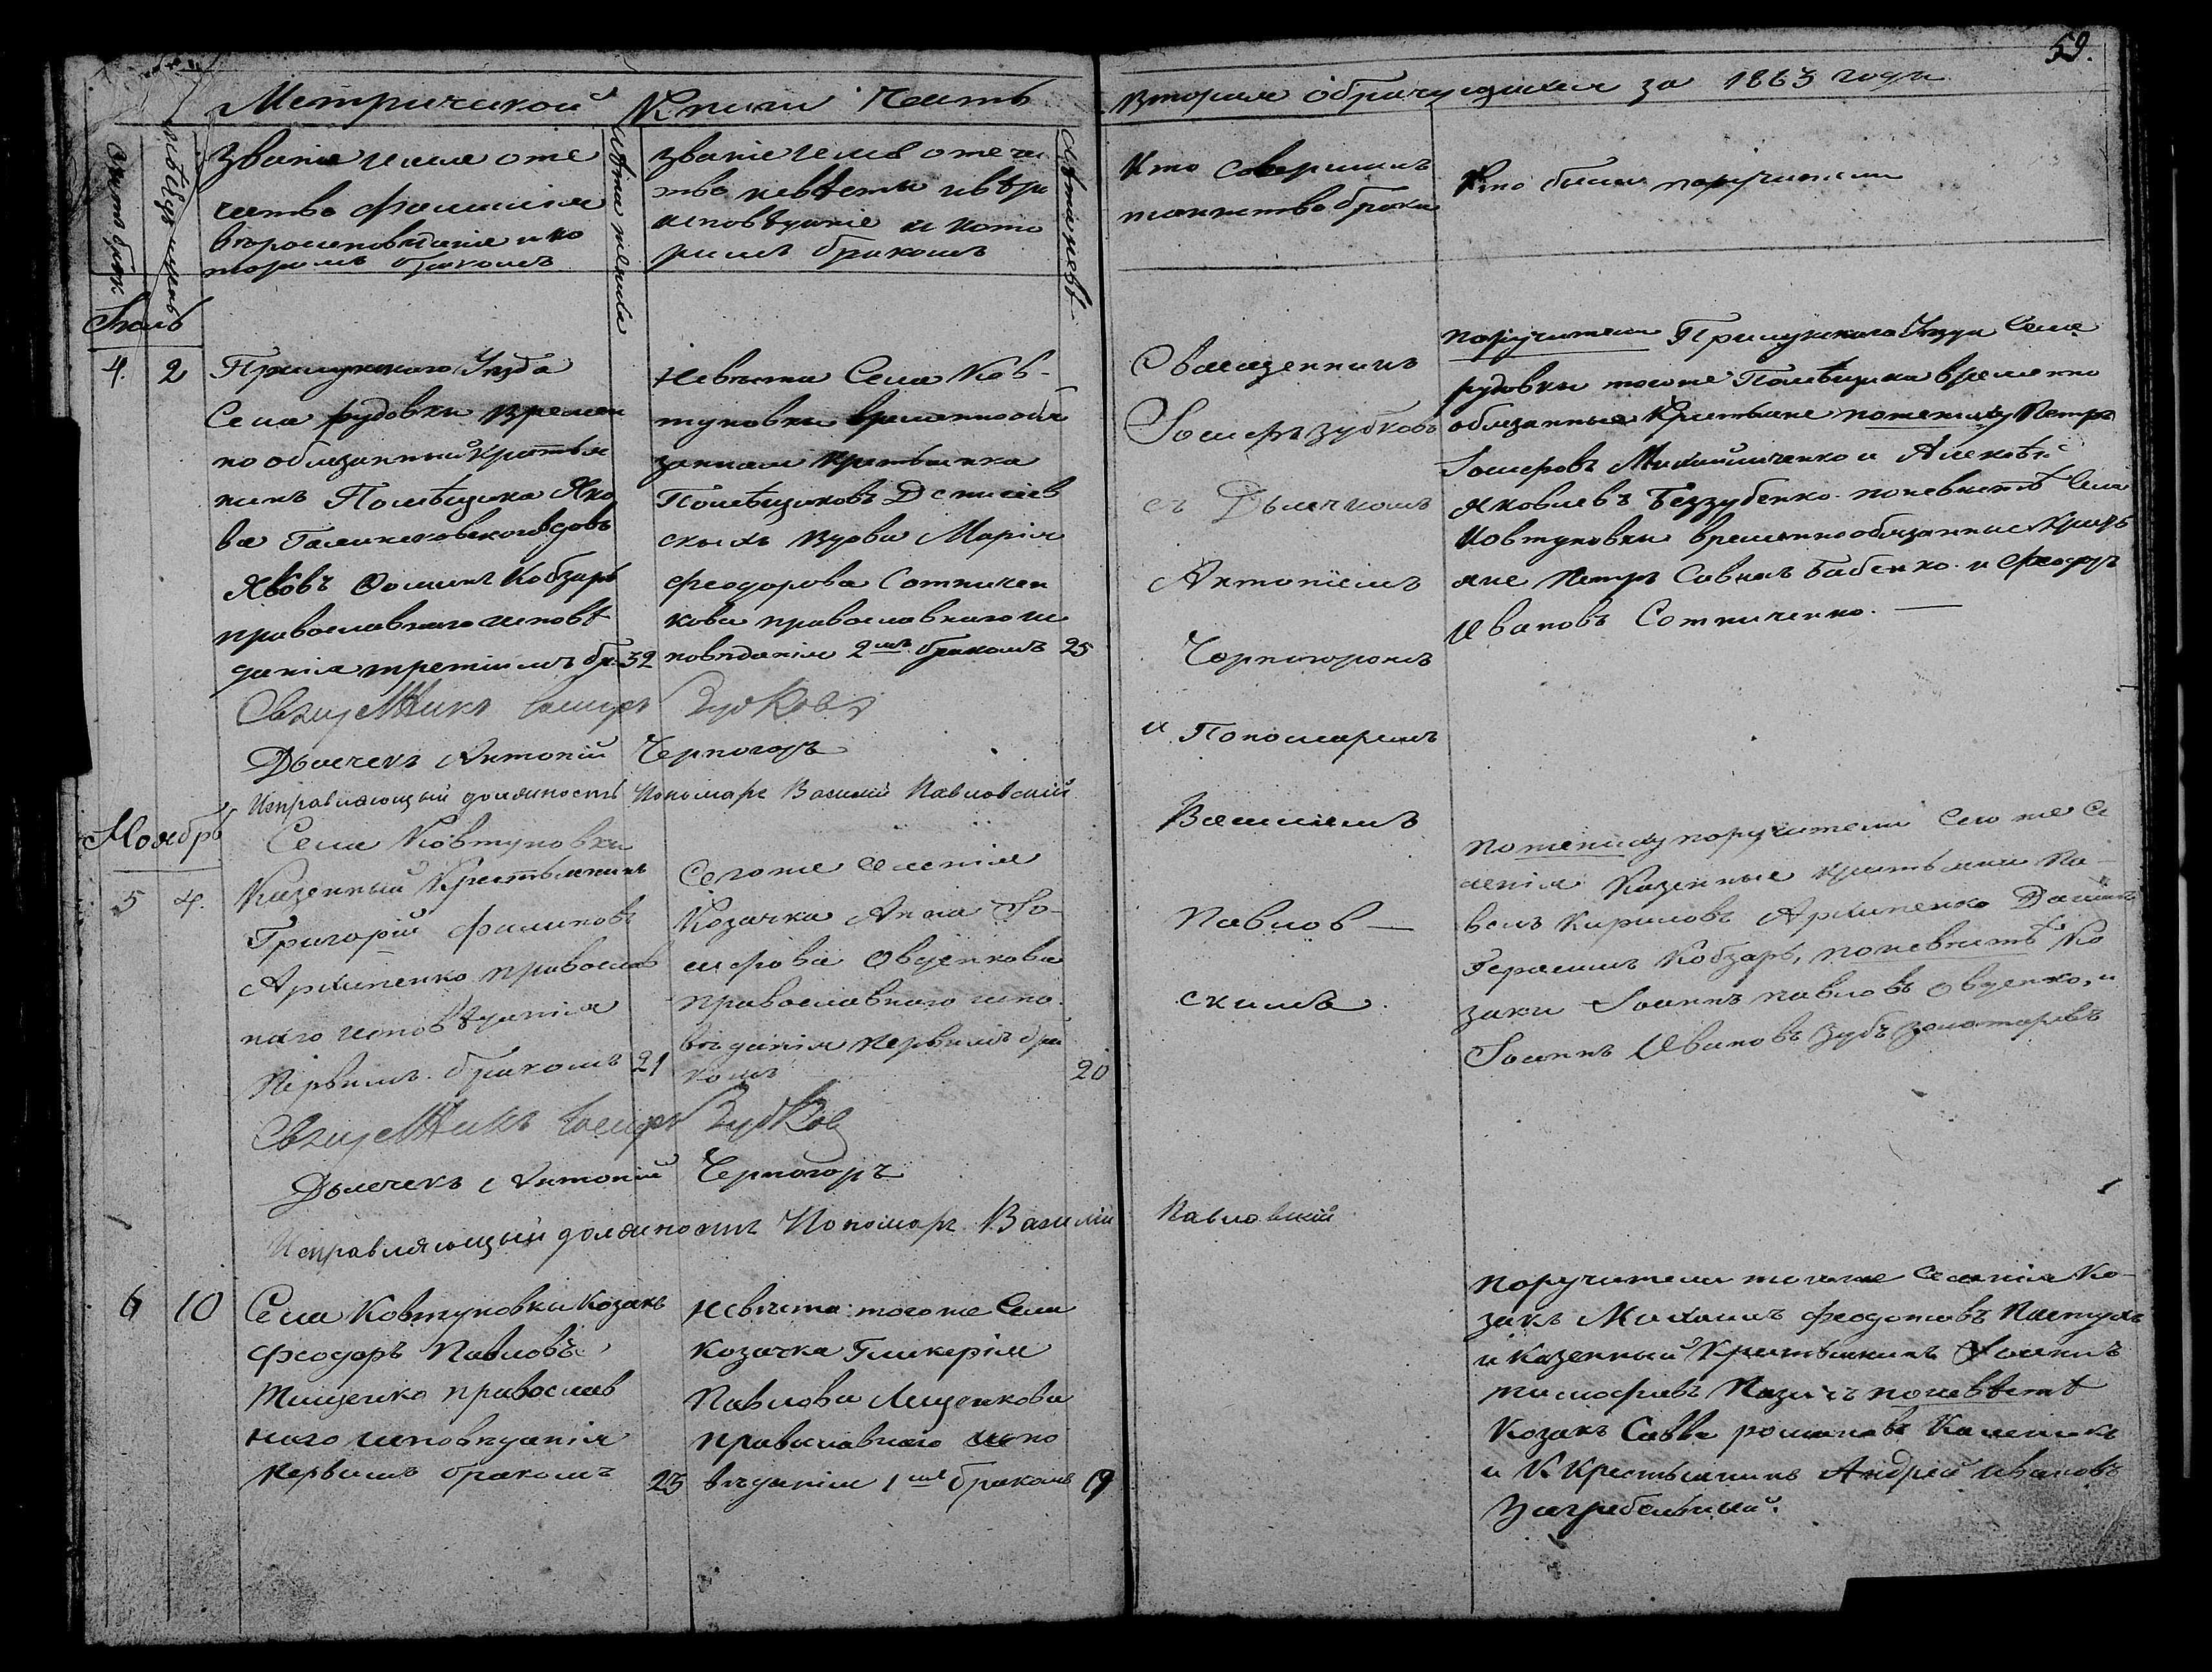 59.
Метрической Книги Часть вторая о бракосочет за 1863 годъ
Счетъ брак.
Мѣсяцъ и день
Званіе имя оте
чество фамилія
вѣроисповѣданіе и ко
торымъ бракомъ
Лѣта жениха
Званіе имя отече
ство невѣсты и вѣро
исповѣданіе и кото
рымъ бракомъ
Лѣта невѣ
Кто совершалъ
таинство брака
Кто были поручители
Іюль
4. 2
Прилукскаго Уезда
Села Рудовки времен
но обязанный крестья
нинъ Помѣщика Яко
ва вдовъ
Яковъ Фоминъ Кобзарь
православнаго исповѣ
данія третіимъ бр. 32
Невѣста Села Ков-
туновки временнообя
занная крестьянка
Помѣщиковъ Денисіев
скихъ вдова Марія
Феодорова Сотничен
кова православнаго ис
повѣданія 2мъ бракомъ 25
Священникъ
Іосифъ Зубковъ
съ Дьячкомъ
Антоніемъ
Черногоромъ
и Пономаремъ
Василіемъ
Павлов-
скимъ
поручители Прилукскаго Уезда Села
рудовки того же Помѣщика временно
обязанные Крестьяне по жениху Петръ
Іосифовъ Михайличенко и Алексѣй
Яковлевъ Беззубенко по невѣстѣ Села
Ковтуновки временнообязанные крестья
яне Петръ Саввинъ Бабенко и Феодоръ
Ивановъ Сотниченко.
Священникъ Іосифъ Зубковъ
Дьячекъ Антоній Черногоръ
Исправляющый должность Пономаря Василій Павловскій
Ноябрь
5 4.
Села Ковтуновки
Казенный Крестьянинъ
Григорій Филиповъ
Архипенко православ
наго исповѣданія
первымъ бракомъ 21
Сего же селенія
Козачка Анна Іо-
сифова Овдіенкова
православнаго испо-
вѣданія первымъ бра
комъ 20
По жениху поручители сего же се
ленія Казенные крестьяне Па-
велъ Кириловъ Архипенко
Герасимъ Кобзарь, по невѣстѣ Ко
заки Іоаннъ Павловъ Овдіенко, и
Іоаннъ Ивановъ Зубъ Золотаревъ
Священникъ Іосифъ Зубков
Дьячекъ Антоній Черногоръ
Исправляющый должность Пономаря Василій Павловскій
6 10
Села Ковтуновки Козакъ
Феодоръ Павловъ
Тищенко православ
наго исповѣданія
первымъ бракомъ 25
Невѣста того же Села
козачка Гликерія
Павлова Лищенкова
православнаго испо
вѣданія 1мъ бракомъ 19
Поручители того же селенія Ко-
закъ Михаилъ Феодотовъ Пастухъ
и Казенный Крестьянинъ Іоаннъ
Тимофѣевъ по невѣстѣ
Козакъ Савва Романовъ
и К. Крестьянинъ Андрей Ивановъ
Загребельный.